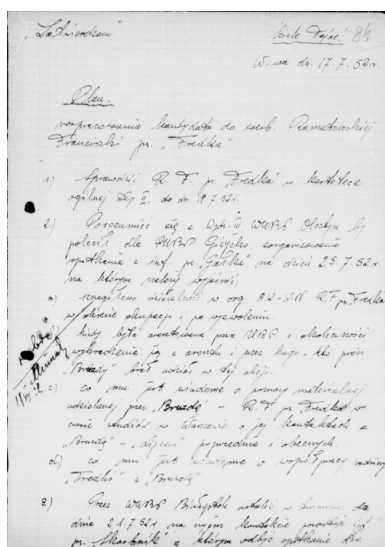 "Zatwierdzam"
Ściśle Tajne! 84
W-wa dn. 17.7.52 r.
Plan.
rozpracowania kandydata do werb. Ramotowskiej
Franciszki ps. "Fredka"
1) Sprawdzić R. F. ps. "Fredka" w kartotece
ogólnej Dep. II do dn. 18.7.52 r.
2) Porozumieć się z Wydz. III WUBP Olsztyn by
polecił dla PUBP Giżycko zorganizowanie
spotkania z inf. ps. na dzień 25.7.52 r.
na którym należy wyjaśnić;
a) szczegółowo działalność w org. AK-WiN R. F. ps. Fredka
w okresie okupacji i po wyzwoleniu
kiedy była aresztowana przez UBP i okoliczności
wykradzenia jej z aresztu i przez kogo. kto prócz
"Bruzdy" brał udział w tej akcji.
c) co mu jest wiadome o pomocy materialnej
udzielonej przez "Bruzdę" - R. F. ps. Fredka w
czasie studiów w Warszawie o jej kontaktach z
"Bruzdą" - poprzednio i obecnych.
d) co mu jest wiadome o współpracy rodziny
"Fredki" z "Bruzdą"
3) Przez WUBP Białystok ustalić w terminie do
dnia 21.7.52 r. na czyim kontakcie pozostaje inf.
ps. "Skarbnik" z którym odbyć spotkanie dla